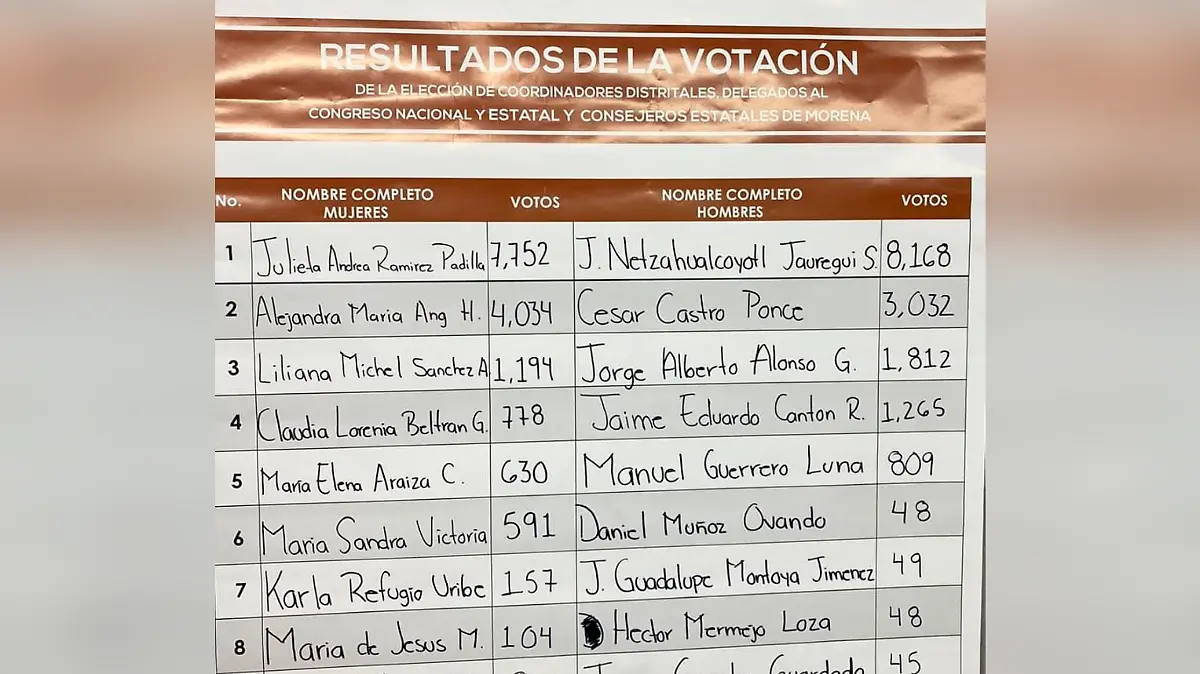 RESULTADOS DE LA VOTACIÓN
DE LA ELECCIÓN DE COORDINADORES DISTRITALES, DELEGADOS AL
CONGRESO NACIONAL Y ESTATAL Y CONSEJEROS ESTATALES DE MORENA
No. NOMBRE COMPLETO MUJERES VOTOS NOMBRE COMPLETO HOMBRES VOTOS
1 Julieta Andrea Ramirez Padilla 7,752 J. Netzahualcoyotl Jauregui S. 8,168
2 Alejandra Maria Ang H. 4,034 Cesar Castro Ponce 3,032
3 Liliana Michel Sanchez A 1,194 Jorge Alberto Alonso G. 1,812
4 Claudia Lorenia Beltran G. 778 Jaime Eduardo Canton R. 1,265
5 Maria Elena Araiza C. 630 Manuel Guerrero Luna 809
6 Maria Sandra Victoria 591 Daniel Muñoz Ovando 48
7 Karla Refugio Uribe 157 J. Guadalupe Montoya Jimenez 49
8 Maria de Jesus M. 104 Hector Mermejo Loza 48
45